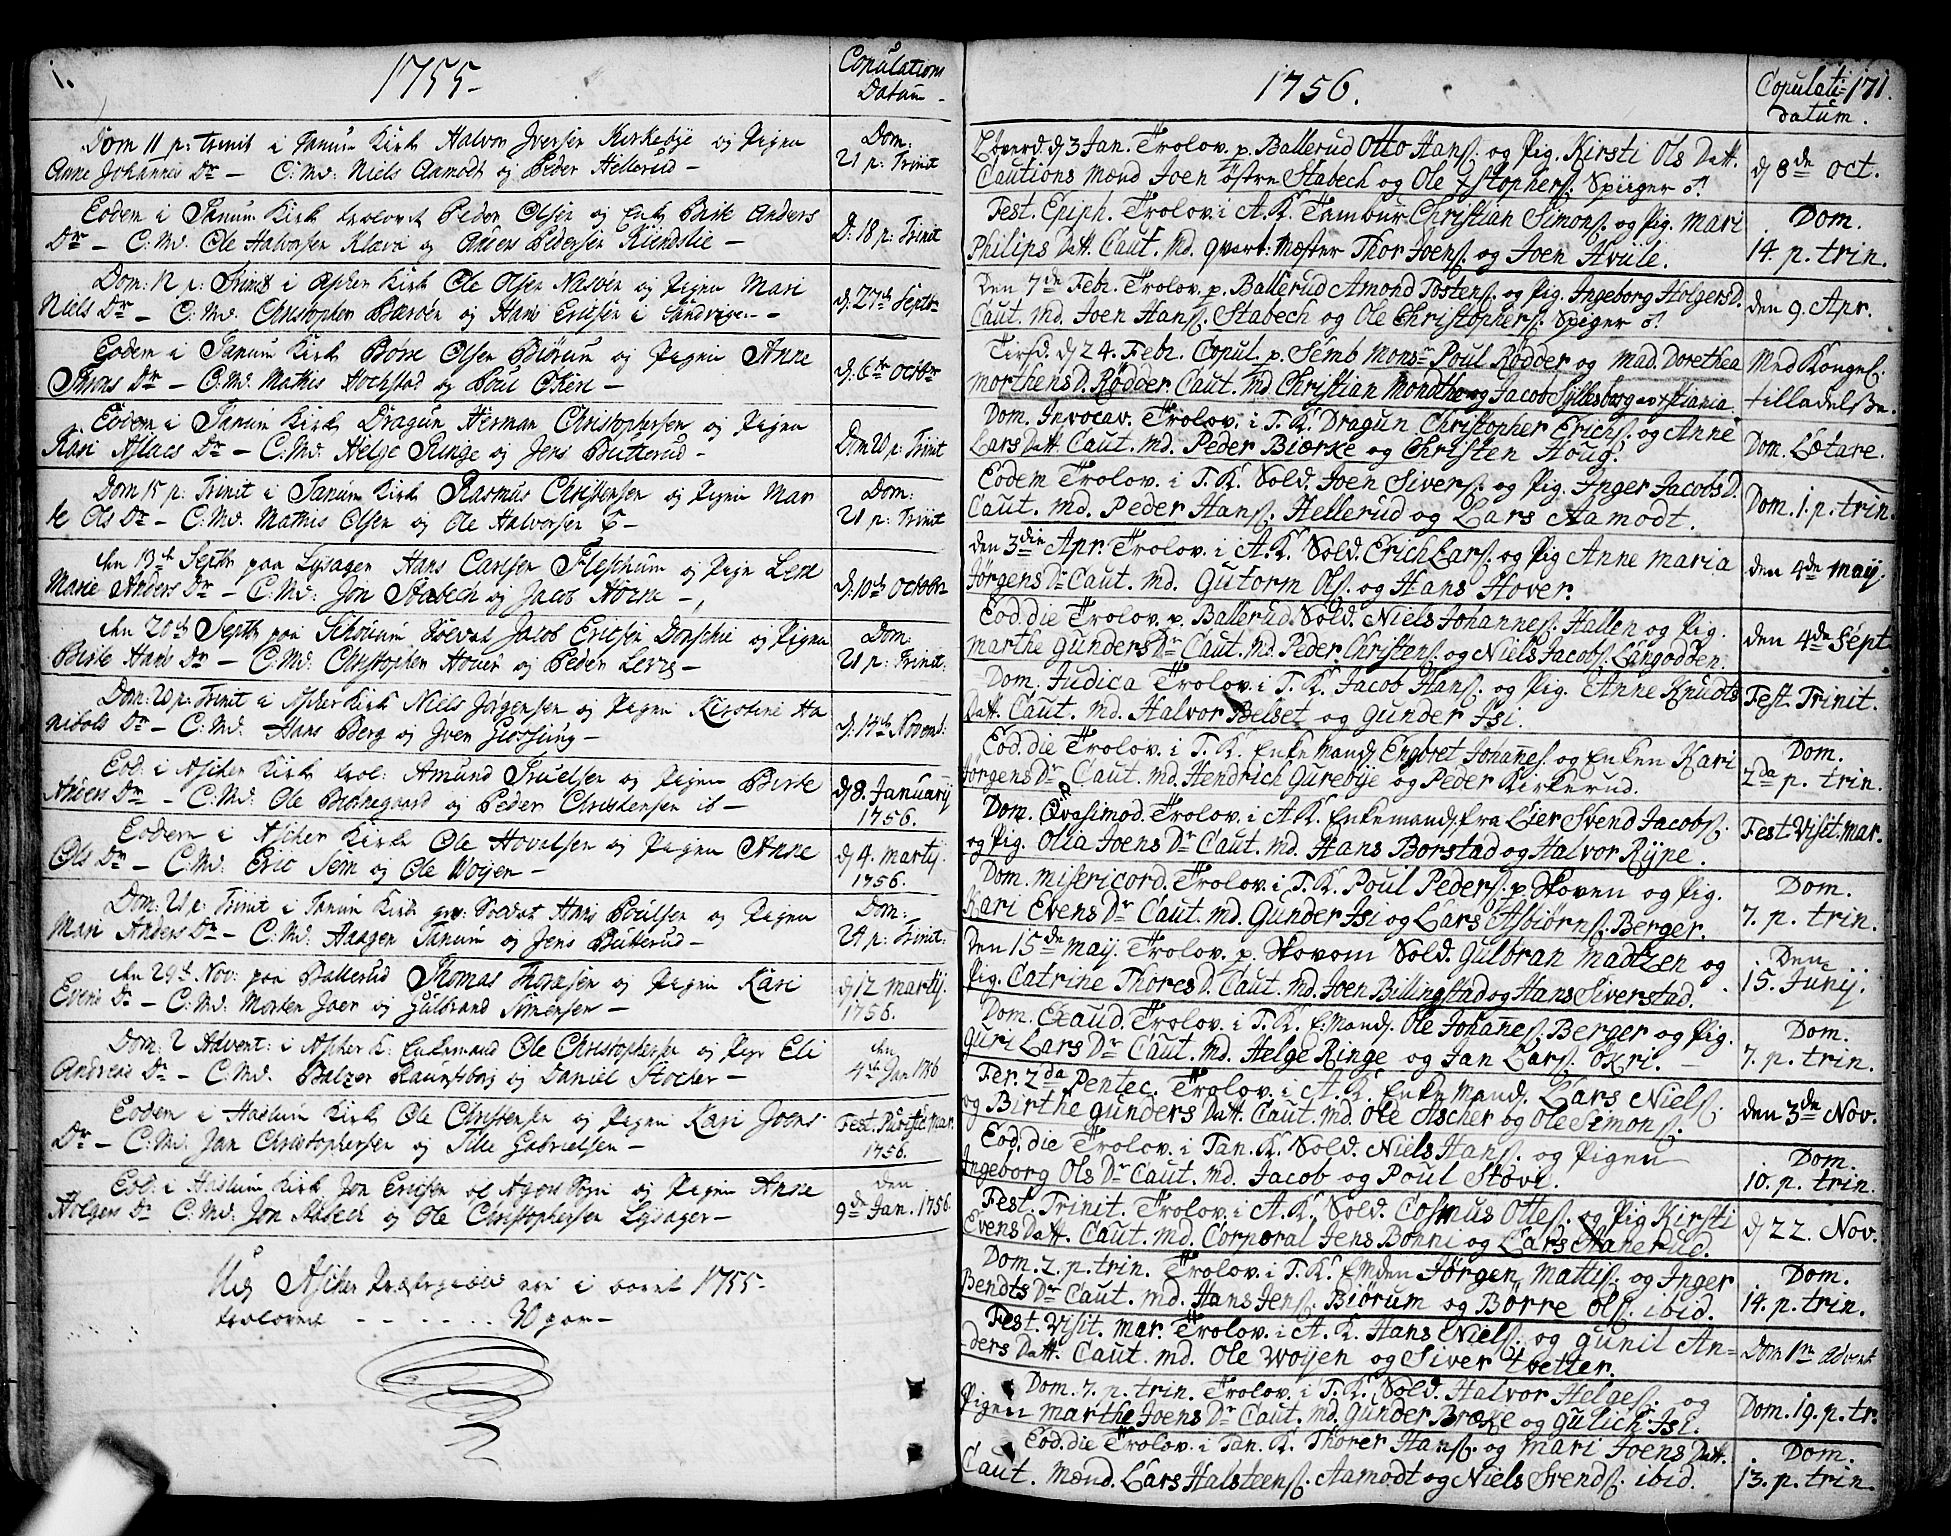 1755
Copulations
Datum
Dom 11 p: trinit i Tanum Kirk Halvor Iversen Kirkebye og Pigen
Anne Johannes Dr — C: Md: Niels Aamodt og Peder Hellerud —
Dom:
21 p: Trinit
Eodem i Tanum Kirk trolovet Peder Olsen og Enk Birte Anders
Dr — C: Md. Ole Halvorsen Kleve og Anders Pedersen
D: 18 p: Trinit
Dom: 12 p: Trinit i Asker Kirk Ole Olsen Nesøen og Pigen Mari
Niels Dr — C: Md. Christopher og Hans Ericsen i Sandvigen —
d: 27de Septr
Eodem i Tanum Kirk Børre Olsen Biørum og Pigen Anne
Dr — C: Md. Mathis Hochstad og Poul
d: 6te Octobr
Eodem i Tanum Kirk Dragun Herman Christophersen og Pigen
Kari Aslacs Dr — C: Md. Helge Ringe og Jens Butterud —
Dom 20 p: Trinit
Dom 15 p: Trinit i Tanum Kirk Rasmus Christensen og Pigen Mar
te Ols Dr — C: Md. Mathis Olsen og Ole Halvorsen
Dom:
21 p: Trinit
den 13de Septr paa Lysager Hans Carlsen og Pigen Lene
Marie Anders Dr — C: Md: Jon Stabech og Jacob
d: 10de Octobr
den 20de Septr paa Jacob Ericsen og Pigen
Birte Hans Dr — C: Md. Christopher Hover og Peder
Dom:
21 p: Trinit:
Dom: 20 p: Trinit i Asker Kirk Niels Jørgensen og Pigen Kirstine Ha
nibals Dr — C. Md. Hans Berg og Iver
d: 14de Novemb:
Eod: i Asker Kirk trol: Amund Truelsen og Pigen Birte
Anders Dr — C: Md: Ole og Peder Christensen ib —
d 8. Januarij
1756.
Eodem i Asker Kirk Ole Hovelsen og Pigen Anne
Ols Dr — C: Md. Eric Sem og Ole Woyen —
d 4. martij.
1756.
Dom: 21 p: Trinit i Tanum Kirk Soldat Hans Poulsen og Pigen
Mari Anders Dr — C: Md. Aagen Tanum og Jens Butterud —
Dom:
24 p: Trinit:
den 29de Nov: paa Ballerud Thomas og Pigen Kari
Evens Dr — C: Md: Morten Jaer og Gulbrand Simensen —
d 12 martij
1756.
Dom: 2 Advent: i Asker K: Enkemand Ole Christophersen og Pigen Eli
Andreas Dr — C: Md. Balzer og Daniel Stocher —
den
4de Jan 1756
Eodem i Haslum Kirk Ole Christensen og Pigen Kari Joens
Dr — C: Md: Jan Christophersen og Gabrielsen —
Fest. Purific. Mar.
1756.
Eod: i Haslum Kirk Jon Ericsen og Pigen Anne
Holgers Dr C: Md: Jon Stabech og Ole Christophersen Lysager —
den
9de Jan. 1756.
Ved Asker Præstegield ere i aaret 1755
trolovet - - - - - - 30 par —
1756.
171.
Copulati=
datum.
Løverd. d 3 Jan. Trolov. p. Ballerud Otto Hans. og Pig. Kirsti Ols Datt.
Cautions mænd Joen østre Stabech og Ole Xstophers. Spiiger
d 8de Oct.
Fest. Epiph. Trolov. i A. K. Tambur Christian Simons. og Pig. Mari
Philips Datt. Caut. Md. Qvart: Mæster Thor Joens. og Joen Hvile.
Dom.
14. p. trin.
Den 7de Feb. Trolov. p. Ballerud Amond Tostens. og Pig. Ingeborg Holgers D.
Caut. Md. Joen Hans. Stabech og Ole Christophers. Spiger
den 9. Apr.
Tirsd. d 24. Febr. Copul. p. Semb Monsr Poul Rødder og Mad. Dorethea
Morthens D. Rødder Caut. Md Christian Mondthe og Jacob Syllesborg av Xstiania.
Med Konges.
tilladelse.
Dom. Invocav. Trolov. i T. K. Dragun Christopher Erichs. og Anne
Lars Datt Caut. Md. Peder Biørke og Christen Houg.
Dom. Lætare.
Eodem Trolov. i T. K. Sold. Joen Sivers. og Pig. Inger Jacobs D.
Caut. Md. Peder Hans. Hellerud og Lars Aamodt.
Dom. 1. p. trin.
den 3die Apr. Trolov. i A. K. Sold. Erich Lars. og Pig Anne Maria
Jørgens Dr Caut. Md. Gutorm Ols. og Hans Hover.
den 4de Maij.
Eod. die Trolov. p. Ballerud Sold. Niels Johannes. Hallen og Pig.
Marthe Gunders Dr Caut. Md. Peder Christens. og Niels Jacobs. Langodden.
den 4de Sept.
Dom. Judica Trolov. i T. K. Jacob Hans. og Pig. Anne Knudts
Datt. Caut. Md. Halvor Belset og Gunder Isi.
Fest. Trinit.
Eod. die Trolov. i T. K. Enke Mand Engbret Johanes. og Enken Kari
Jørgens Dr Caut. Md. Hendrich Gurebye og Peder Kirkerud.
Dom.
2da p. trin.
Dom. Qvasimod. Trolov. i A. K. Enkemand fra Lier Svend Jacobs.
og Pig. Olia Joens Dr Caut. Md. Hans Borstad og Halvor Ryne.
Fest. Visit. Mar.
Dom. Misericord. Trolov. i T. K. Poul Peders. p. Skoven og Pig.
Kari Evens Dr Caut. Md. Gunder Isi og Lars Asbiørns. Berger.
Dom.
7. p. trin.
Den 15de Maij. Trolov. p. Skovom Sold. Gulbran Madtzen og
Pig. Catrine Thores D. Caut. Md. Joen Billingstad og Hans Siverstad.
Den
15. Junij.
Dom. Exaud. Trolov. i T. K. E: Mand. Ole Johannes. Berger og Pig.
Guri Lars Dr Caut. Md. Helge Ringe og Jan Lars. Økri.
Dom.
7. p. trin.
Fer. 2da Pentec. Trolov. i A. K. Enke Mand. Lars Niels.
og Birthe Gunders Datt. Caut. Md. Ole Ascher og Ole Simons.
den 3de Nov.
Eod. die Trolov. i Tan. K. Sold. Niels Hans. og Pigen
Ingeborg Ols Dr Caut. Md. Jacob og Poul Stovi.
Dom.
10. p. trin.
Fest. Trinit. Trolov. i A. K. Sold. Cosmus Ottes. og Pig Kirsti
Evens Datt. Caut. Md. Corporal Jens Bonni og Lars Hanerud.
d 22. Nov.
Dom. 2. p. trin. Trolov. i T. K. E Mden Jørgen Mattis. og Inger
Bendts Dr Caut. Md. Hans Jens. Biørum og Børre Ols. ibid.
Dom.
14. p. trin.
Fest. Visit. Mar. Trolov. i A. K. Hans Niels. og Gunil An=
=ders Datt. Caut. Md. Ole Woyen og Siver Tvetter.
Dom 1m Advent
Dom. 7. p. trin. Trolov. i T. K. Sold. Halvor Helges. og
Pigen Marthe Joens Dr Caut. Md. Gunder Bræke og Gulich Isi.
Dom. 19. p. tr.
Eod. die Trolov. i Tan. K. Thorer Hans. og Mari Joens Datt.
Caut. Mænd. Lars Halsteens. Aamodt og Niels Svends. ibid.
Dom.
13. p. trin.